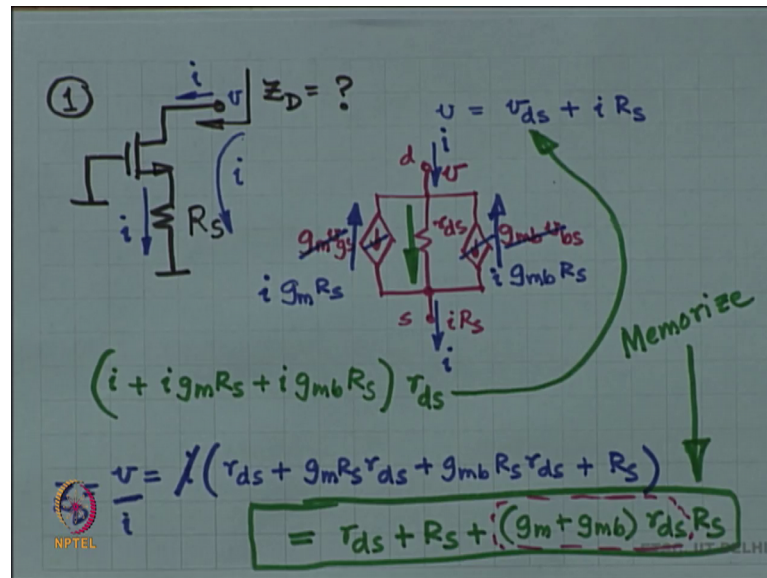 ① i v Z_D = ?
i i R_S
v = v_ds + i R_S
i
d v
g_m v_gs r_ds g_mb v_bs
i g_m R_S i g_mb R_S
s i R_S
i
Memorize
(i + i g_m R_S + i g_mb R_S) r_ds
v/i = i (r_ds + g_m R_S r_ds + g_mb R_S r_ds + R_S)
= r_ds + R_S + (g_m + g_mb) r_ds R_S
NPTEL
IIT DELHI